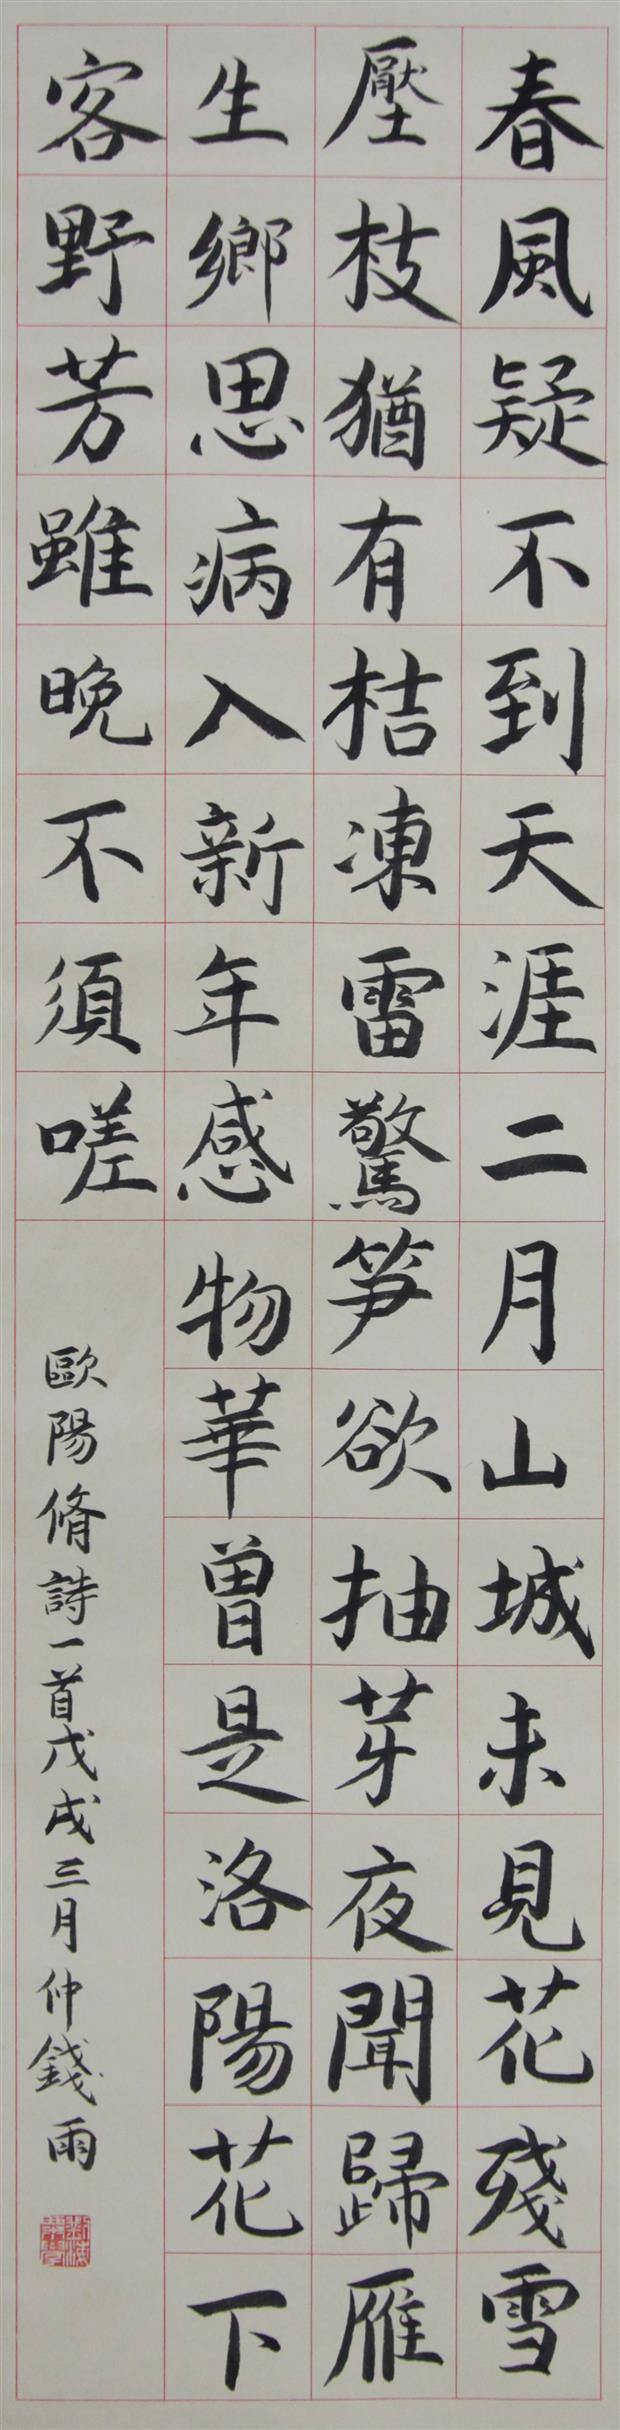 春風疑不到天涯二月山城未見花殘雪
壓枝猶有桔凍雷驚笋欲抽芽夜聞歸雁
生鄉思病入新年感物華曾是洛陽花下
客野芳雖晚不須嗟
歐陽脩詩一首戊戌三月仲錢雨